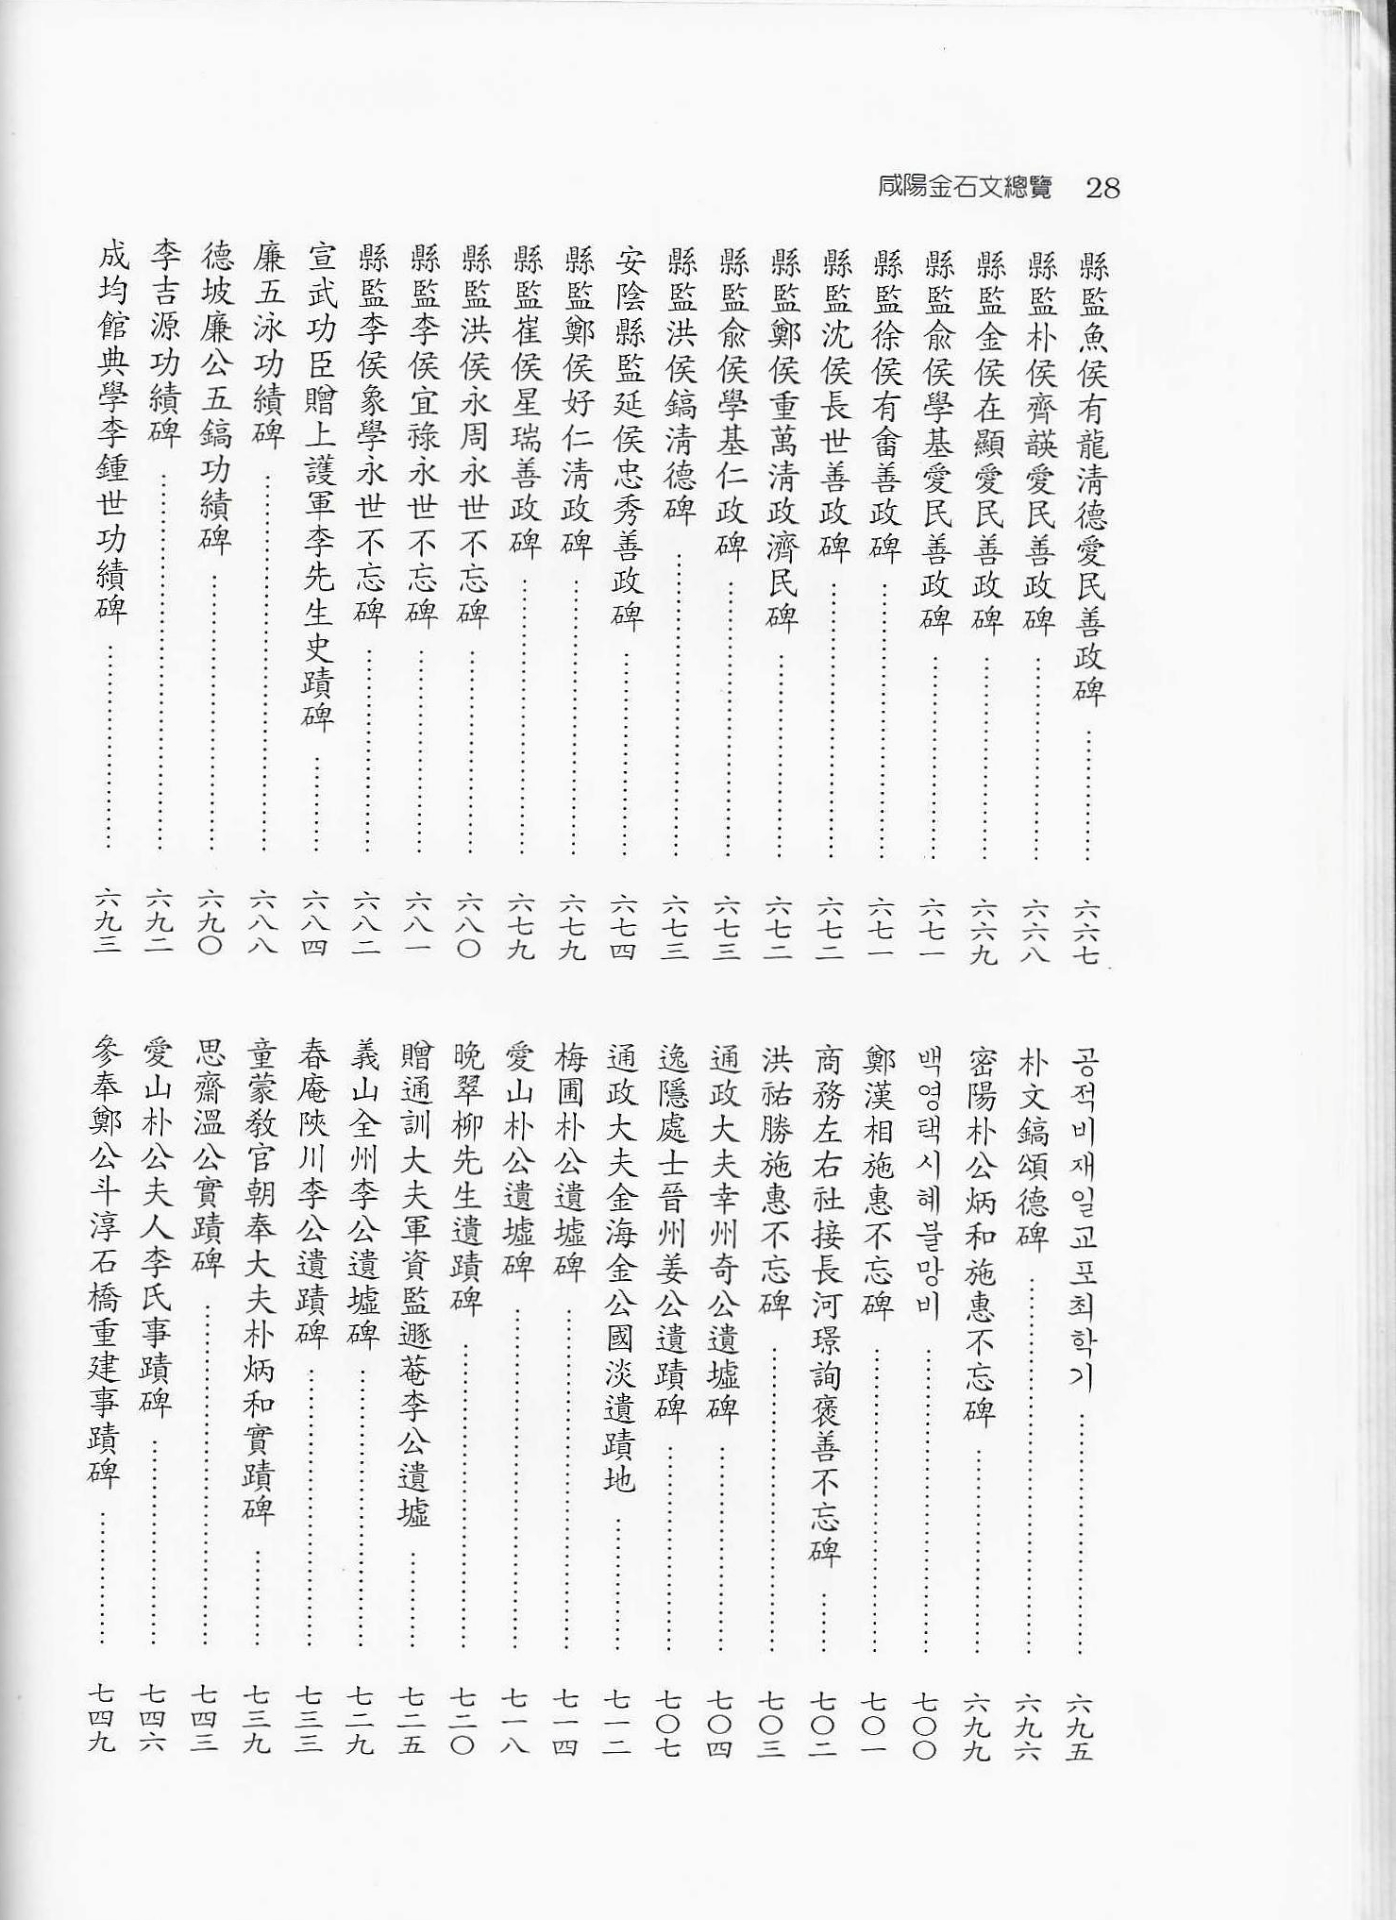 咸陽金石文總覽 28
縣監魚侯有龍淸德愛民善政碑 六六七
縣監朴侯齊韺愛民善政碑 六六八
縣監金侯在顯愛民善政碑 六六九
縣監兪侯學基愛民善政碑 六七一
縣監徐侯有畬善政碑 六七一
縣監沈侯長世善政碑 六七二
縣監鄭侯重萬淸政濟民碑 六七二
縣監兪侯學基仁政碑 六七三
縣監洪侯鎬淸德碑 六七三
安陰縣監延侯忠秀善政碑 六七四
縣監鄭侯好仁淸政碑 六七九
縣監崔侯星瑞善政碑 六七九
縣監洪侯永周永世不忘碑 六八〇
縣監李侯宜祿永世不忘碑 六八一
縣監李侯象學永世不忘碑 六八二
宣武功臣贈上護軍李先生史蹟碑 六八四
廉五泳功績碑 六八八
德坡廉公五鎬功績碑 六九〇
李吉源功績碑 六九二
成均館典學李鍾世功績碑 六九三
공적비재일교포최학기 六九五
朴文鎬頌德碑 六九六
密陽朴公炳和施惠不忘碑 六九九
백영택시혜불망비 七〇〇
鄭漢相施惠不忘碑 七〇一
商務左右社接長河璟詢褒善不忘碑 七〇二
洪祐勝施惠不忘碑 七〇三
通政大夫幸州奇公遺墟碑 七〇四
逸隱處士晉州姜公遺蹟碑 七〇七
通政大夫金海金公國淡遺蹟地 七一二
梅圃朴公遺墟碑 七一四
愛山朴公遺墟碑 七一八
晩翠柳先生遺蹟碑 七二〇
贈通訓大夫軍資監遯菴李公遺墟 七二五
義山全州李公遺墟碑 七二九
春庵陜川李公遺蹟碑 七三三
童蒙敎官朝奉大夫朴炳和實蹟碑 七三九
思齋溫公實蹟碑 七四三
愛山朴公夫人李氏事蹟碑 七四六
參奉鄭公斗淳石橋重建事蹟碑 七四九